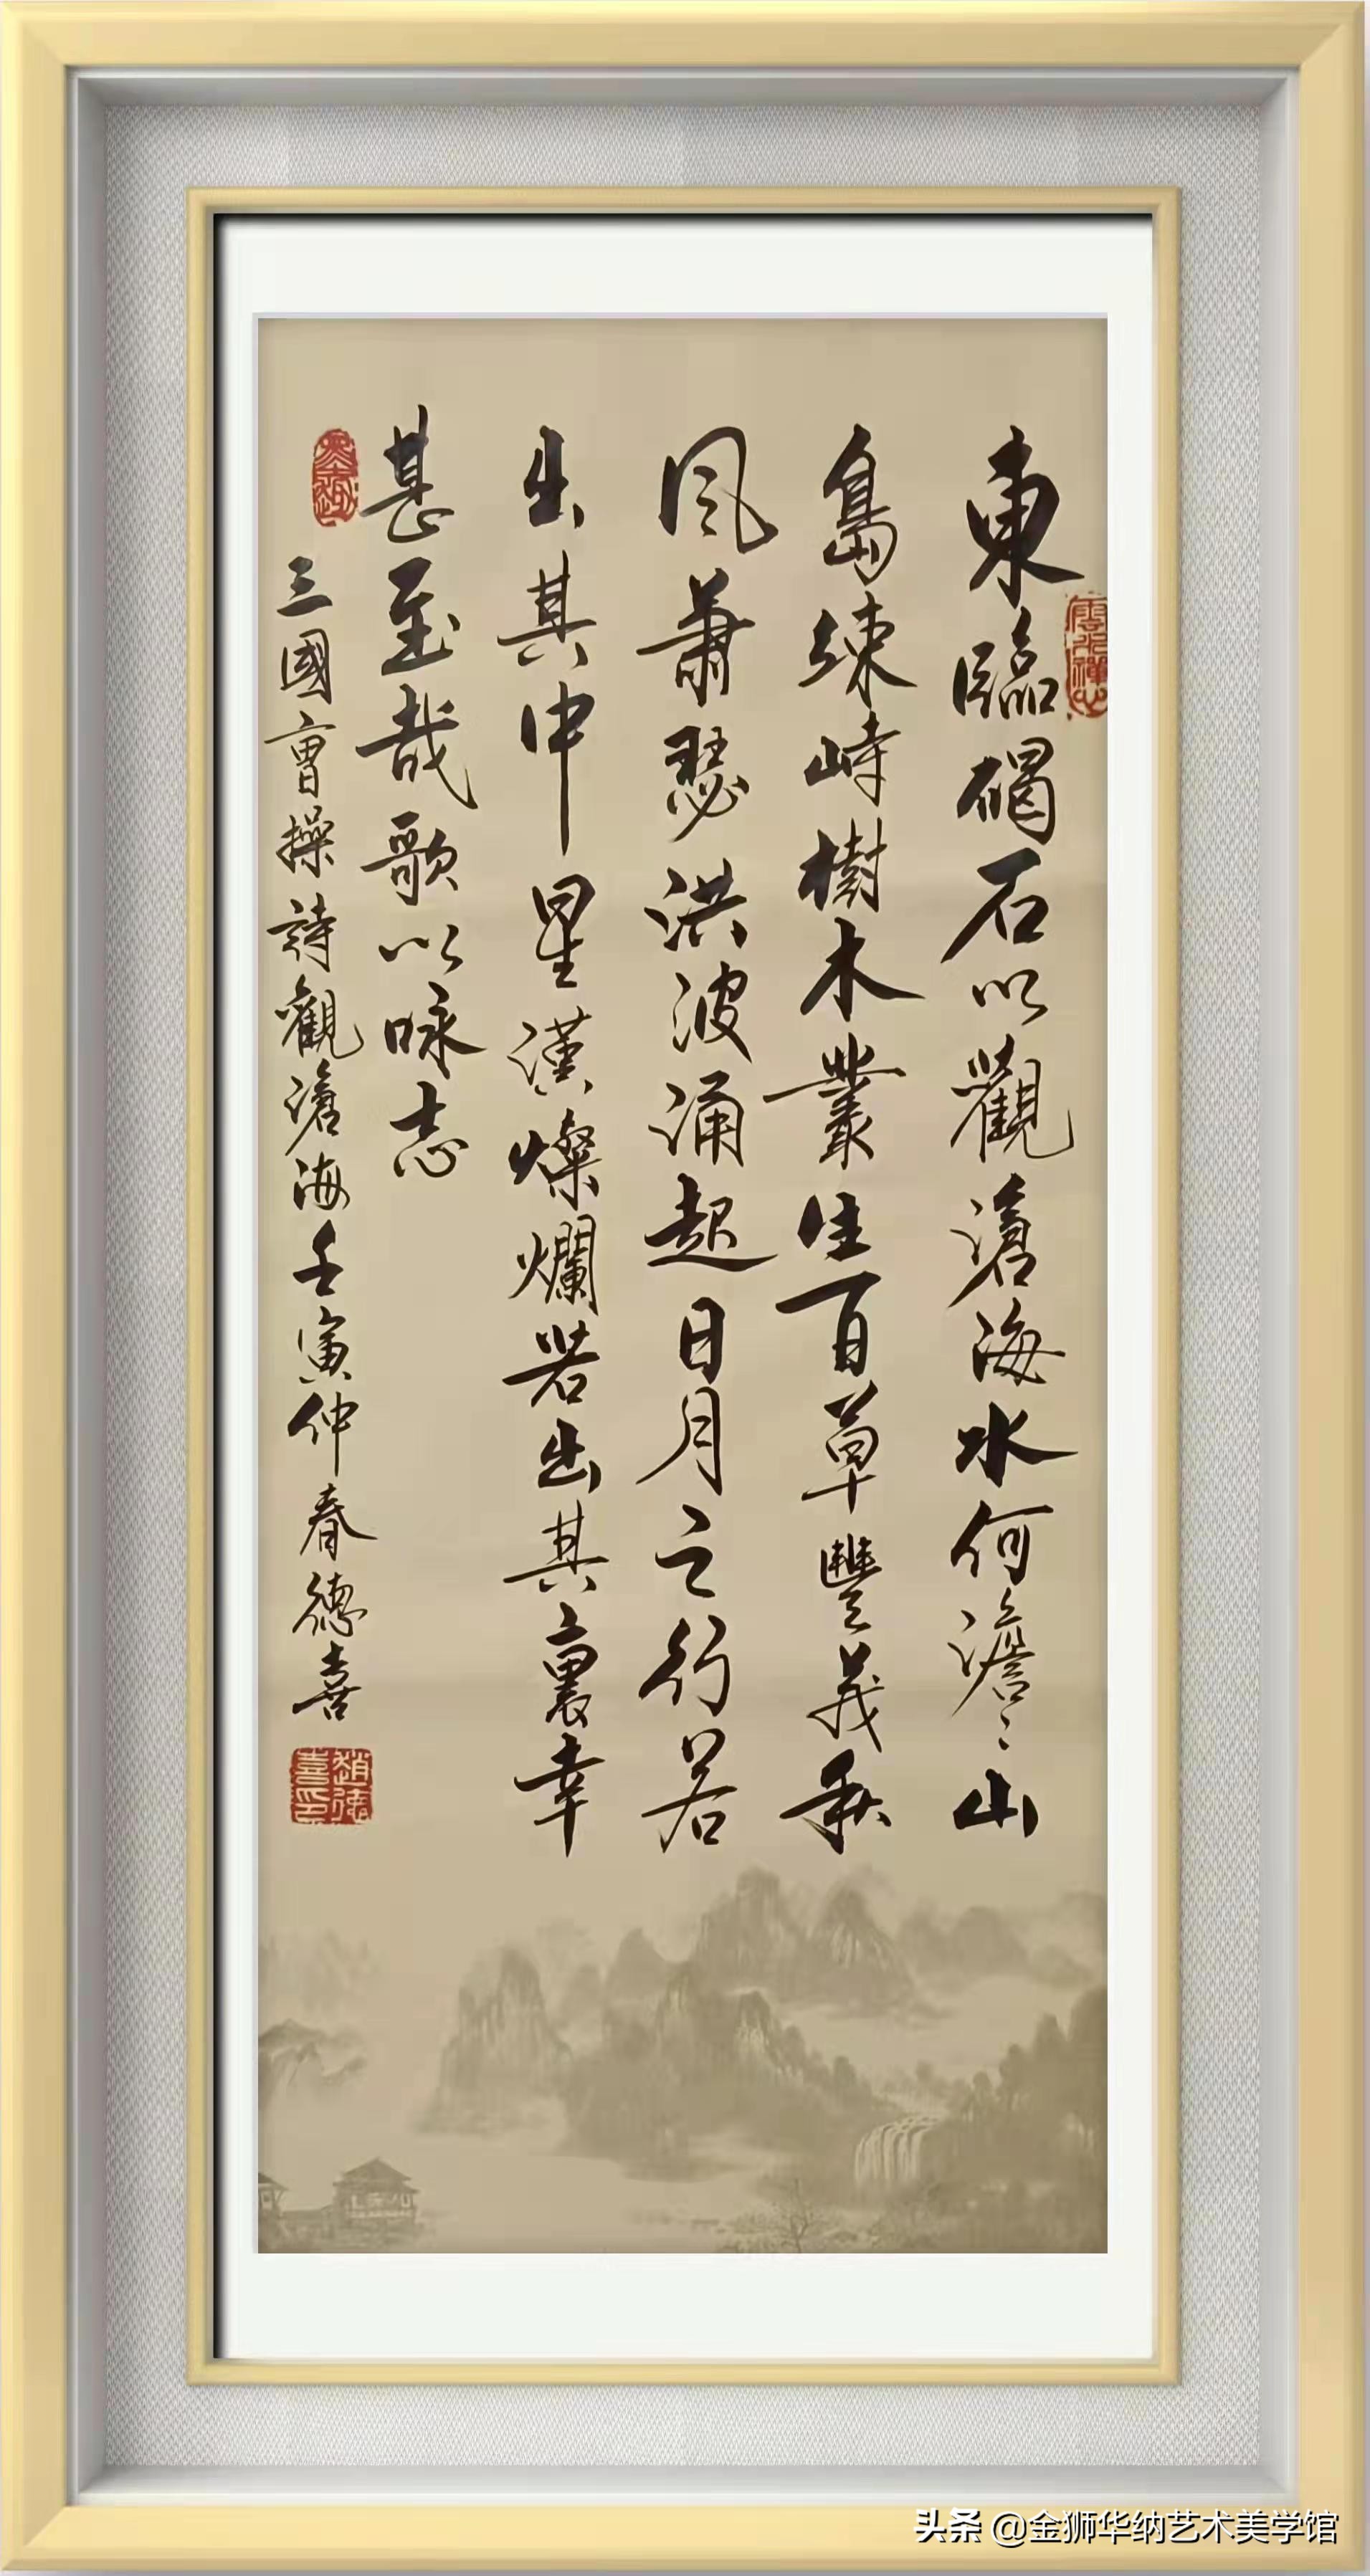 東臨碣石以觀滄海水何澹〻山
島竦峙樹木叢生百草豐茂秋
風蕭瑟洪波涌起日月之行若
出其中星漢燦爛若出其裏幸
甚至哉歌以咏志
三國曹操詩觀滄海壬寅仲春德喜
趙德喜印
头条 @金狮华纳艺术美学馆